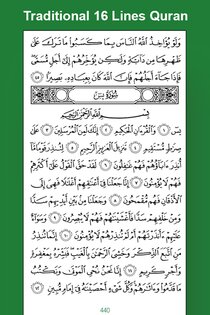 Traditional 16 Lines Quran
وَلَوْ يُؤَاخِذُ ٱللَّهُ ٱلنَّاسَ بِمَا كَسَبُوا۟ مَا تَرَكَ عَلَىٰ
ظَهْرِهَا مِن دَآبَّةٍ وَلَـٰكِن يُؤَخِّرُهُمْ إِلَىٰٓ أَجَلٍ مُّسَمًّى
فَإِذَا جَآءَ أَجَلُهُمْ فَإِنَّ ٱللَّهَ كَانَ بِعِبَادِهِۦ بَصِيرًۢا ٤٥
سُورَةُ يسٓ
بِسْمِ ٱللَّهِ ٱلرَّحْمَـٰنِ ٱلرَّحِيمِ
يسٓ ١ وَٱلْقُرْءَانِ ٱلْحَكِيمِ ٢ إِنَّكَ لَمِنَ ٱلْمُرْسَلِينَ ٣ عَلَىٰ
صِرَٰطٍ مُّسْتَقِيمٍ ٤ تَنزِيلَ ٱلْعَزِيزِ ٱلرَّحِيمِ ٥ لِتُنذِرَ قَوْمًا مَّآ
أُنذِرَ ءَابَآؤُهُمْ فَهُمْ غَـٰفِلُونَ ٦ لَقَدْ حَقَّ ٱلْقَوْلُ عَلَىٰٓ أَكْثَرِهِمْ
فَهُمْ لَا يُؤْمِنُونَ ٧ إِنَّا جَعَلْنَا فِىٓ أَعْنَـٰقِهِمْ أَغْلَـٰلًا فَهِىَ إِلَى
ٱلْأَذْقَانِ فَهُم مُّقْمَحُونَ ٨ وَجَعَلْنَا مِنۢ بَيْنِ أَيْدِيهِمْ سَدًّا
وَمِنْ خَلْفِهِمْ سَدًّا فَأَغْشَيْنَـٰهُمْ فَهُمْ لَا يُبْصِرُونَ ٩ وَسَوَآءٌ
عَلَيْهِمْ ءَأَنذَرْتَهُمْ أَمْ لَمْ تُنذِرْهُمْ لَا يُؤْمِنُونَ ١٠ إِنَّمَا تُنذِرُ
مَنِ ٱتَّبَعَ ٱلذِّكْرَ وَخَشِىَ ٱلرَّحْمَـٰنَ بِٱلْغَيْبِ فَبَشِّرْهُ بِمَغْفِرَةٍ
وَأَجْرٍ كَرِيمٍ ١١ إِنَّا نَحْنُ نُحْىِ ٱلْمَوْتَىٰ وَنَكْتُبُ
مَا قَدَّمُوا۟ وَءَاثَـٰرَهُمْ وَكُلَّ شَىْءٍ أَحْصَيْنَـٰهُ فِىٓ إِمَامٍ مُّبِينٍ ١٢
440